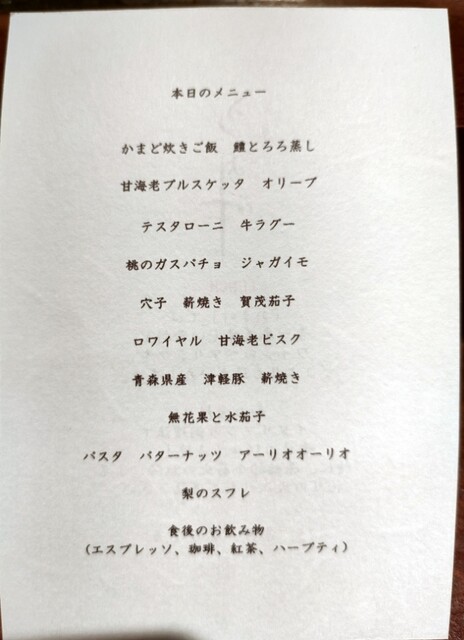 本日のメニュー
かまど炊きご飯　鱧とろろ蒸し
甘海老ブルスケッタ　オリーブ
テスタローニ　牛ラグー
桃のガスパチョ　ジャガイモ
穴子　薪焼き　賀茂茄子
ロワイヤル　甘海老ビスク
青森県産　津軽豚　薪焼き
無花果と水茄子
パスタ　バターナッツ　アーリオオーリオ
梨のスフレ
食後のお飲み物
（エスプレッソ、珈琲、紅茶、ハーブティ）